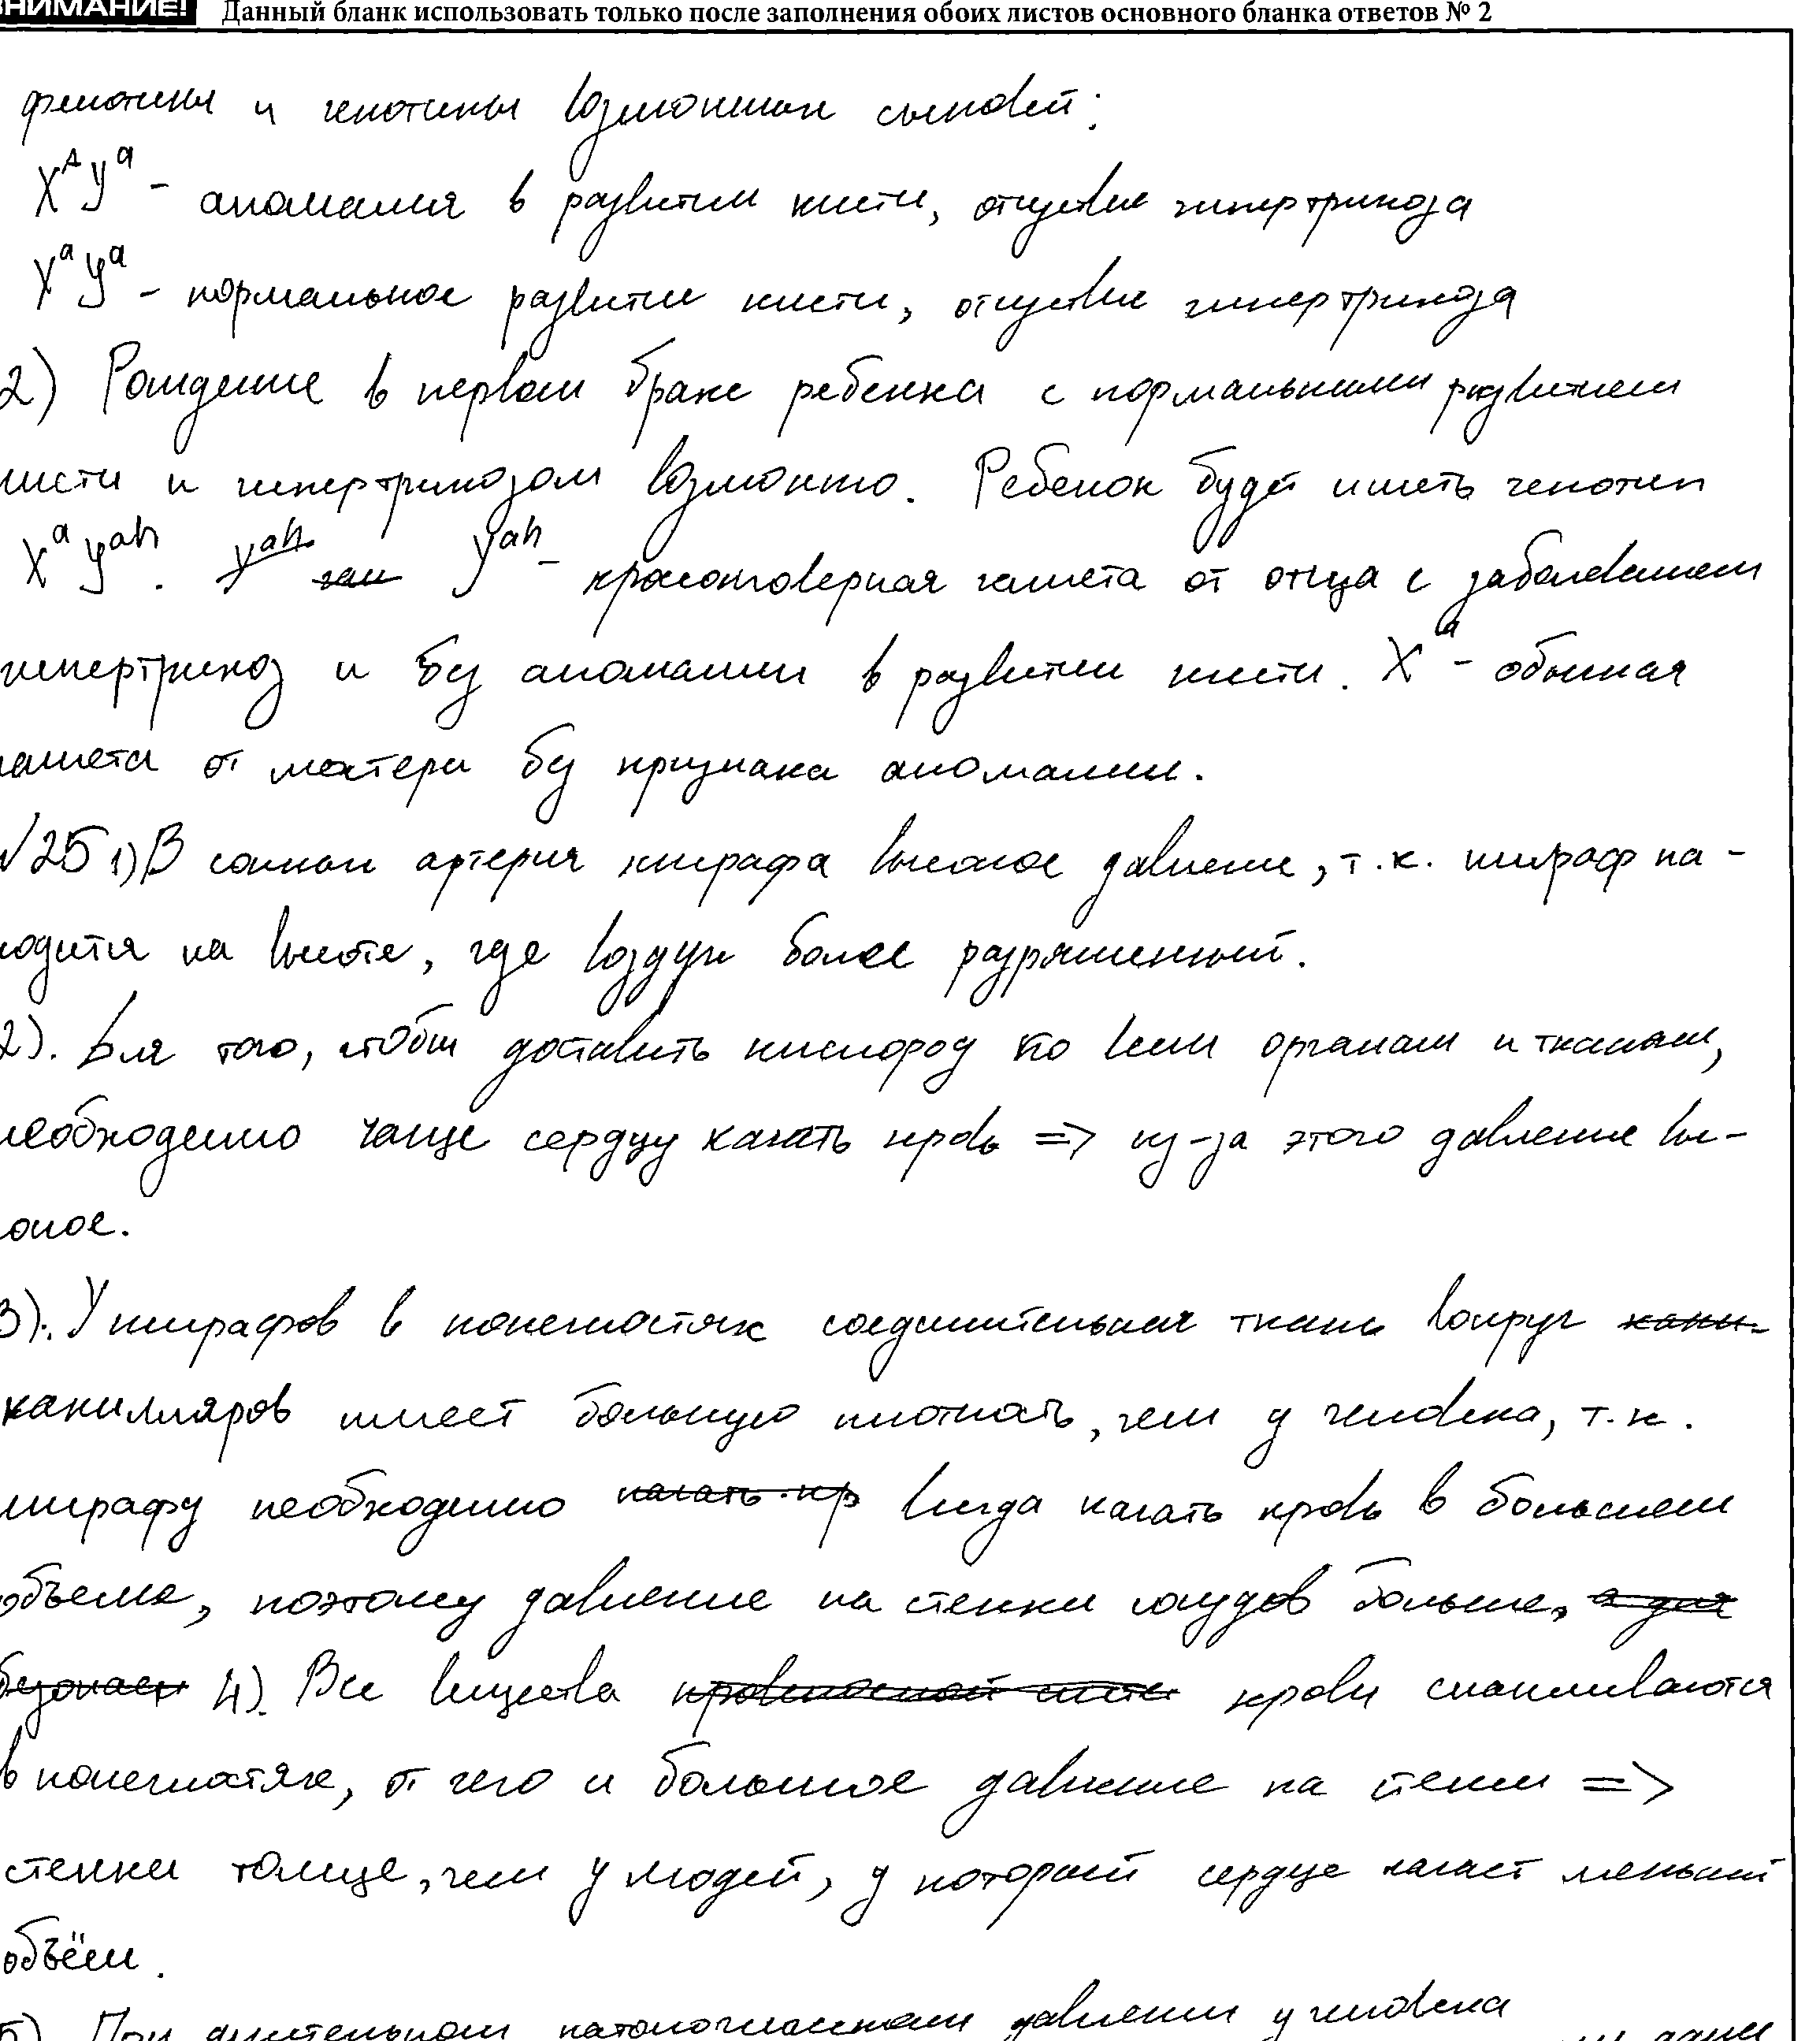 ВНИМАНИЕ! Данный бланк использовать только после заполнения обоих листов основного бланка ответов № 2
фенотипы и генотипы возможных сыновей:
X^A Y^a - аномалия в развитии кисти, отсуствие гипертрихоза
X^a Y^a - нормальное развитие кисти, отсуствие гипертрихоза
2) Рождение в первом браке ребенка с нормальными развитием
кисти и гипертрихозом возможно. Ребенок будет иметь генотип
X^a Y^ah. Y^ah - кроссоверная гамета от отца с заболеванием
гипертрихоз и без аномалии в развитии кисти. X^a - обычная
гамета от матери без признака аномалии.
№25 1) В сонной артерии жирафа высокое давление, т.к. жираф на-
ходится на высоте, где воздух более разряженный.
2). Для того, чтобы доставить кислород ко всем органам и тканям,
необходимо чаще сердцу качать кровь => из-за этого давление вы-
сокое.
3). У жирафов в конечностях соединительная ткань вокруг
капилляров имеет большую плотность, чем у человека, т.к.
жирафу необходимо всегда качать кровь в большем
объеме, поэтому давление на стенки сосудов больше.
4). Все вещества крови скапливаются
в конечностях, от чего и большое давление на стенки =>
стенки толще, чем у людей, у которых сердце качает меньший
объём.
5) При длительном патологическом давлении у человека